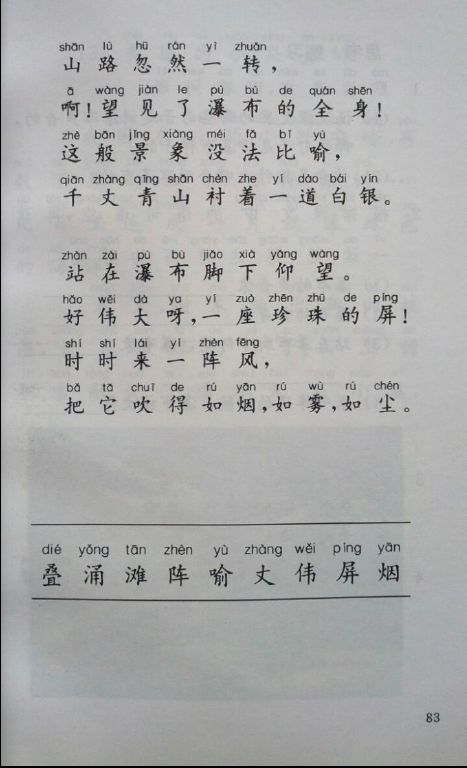 shān lù hū rán yì zhuǎn
山路忽然一转，
ā wàng jiàn le pù bù de quán shēn
啊！望见了瀑布的全身！
zhè bān jǐng xiàng méi fǎ bǐ yù
这般景象没法比喻，
qiān zhàng qīng shān chèn zhe yí dào bái yín
千丈青山衬着一道白银。
zhàn zài pù bù jiǎo xià yǎng wàng
站在瀑布脚下仰望。
hǎo wěi dà ya yí zuò zhēn zhū de píng
好伟大呀，一座珍珠的屏！
shí shí lái yí zhèn fēng
时时来一阵风，
bǎ tā chuī de rú yān rú wù rú chén
把它吹得如烟，如雾，如尘。
dié yǒng tān zhèn yù zhàng wěi píng yān
叠涌滩阵喻丈伟屏烟
83